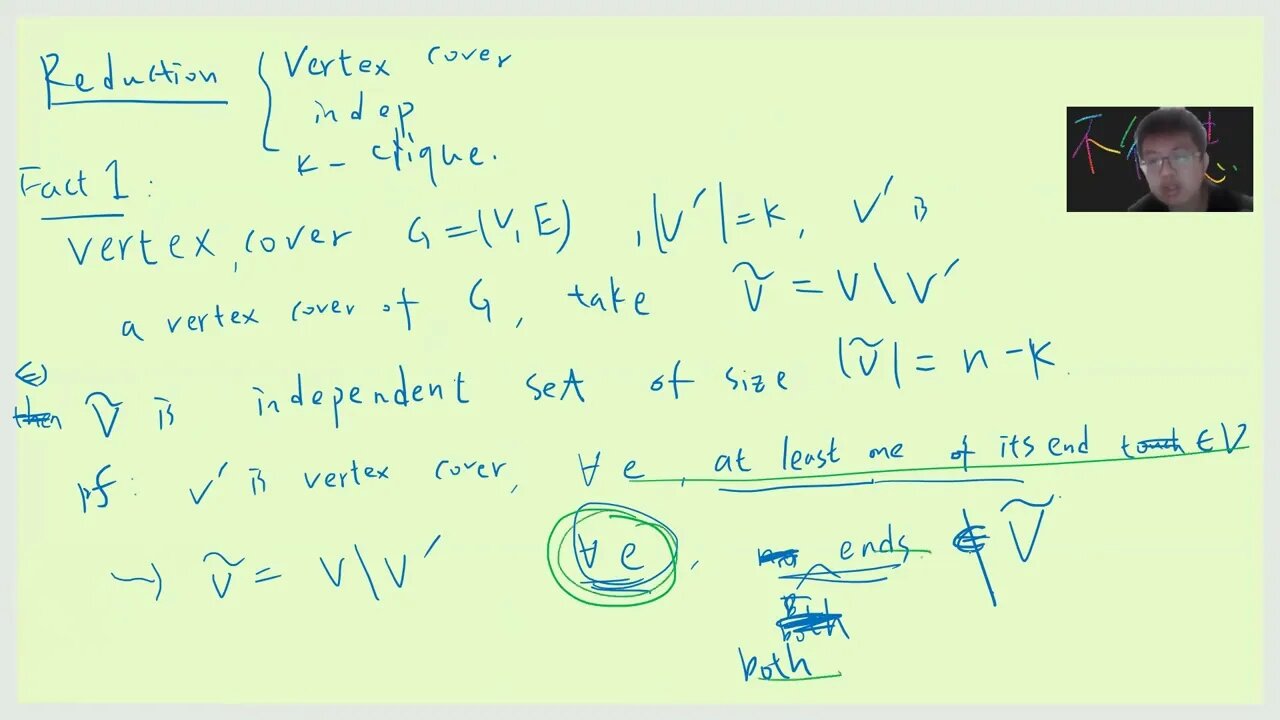 Reduction { Vertex cover
indep
k - clique.
Fact 1 :
vertex cover G = (V, E) , |V'| = k, V' is
a vertex cover of G, take Ṽ = V \ V'
⇔
then Ṽ is independent set of size |Ṽ| = n - k.
pf : V' is vertex cover, ∀ e, at least one of its end touch ∈ V
→ Ṽ = V \ V' ∀ e, ends ∉ Ṽ
both
both
不